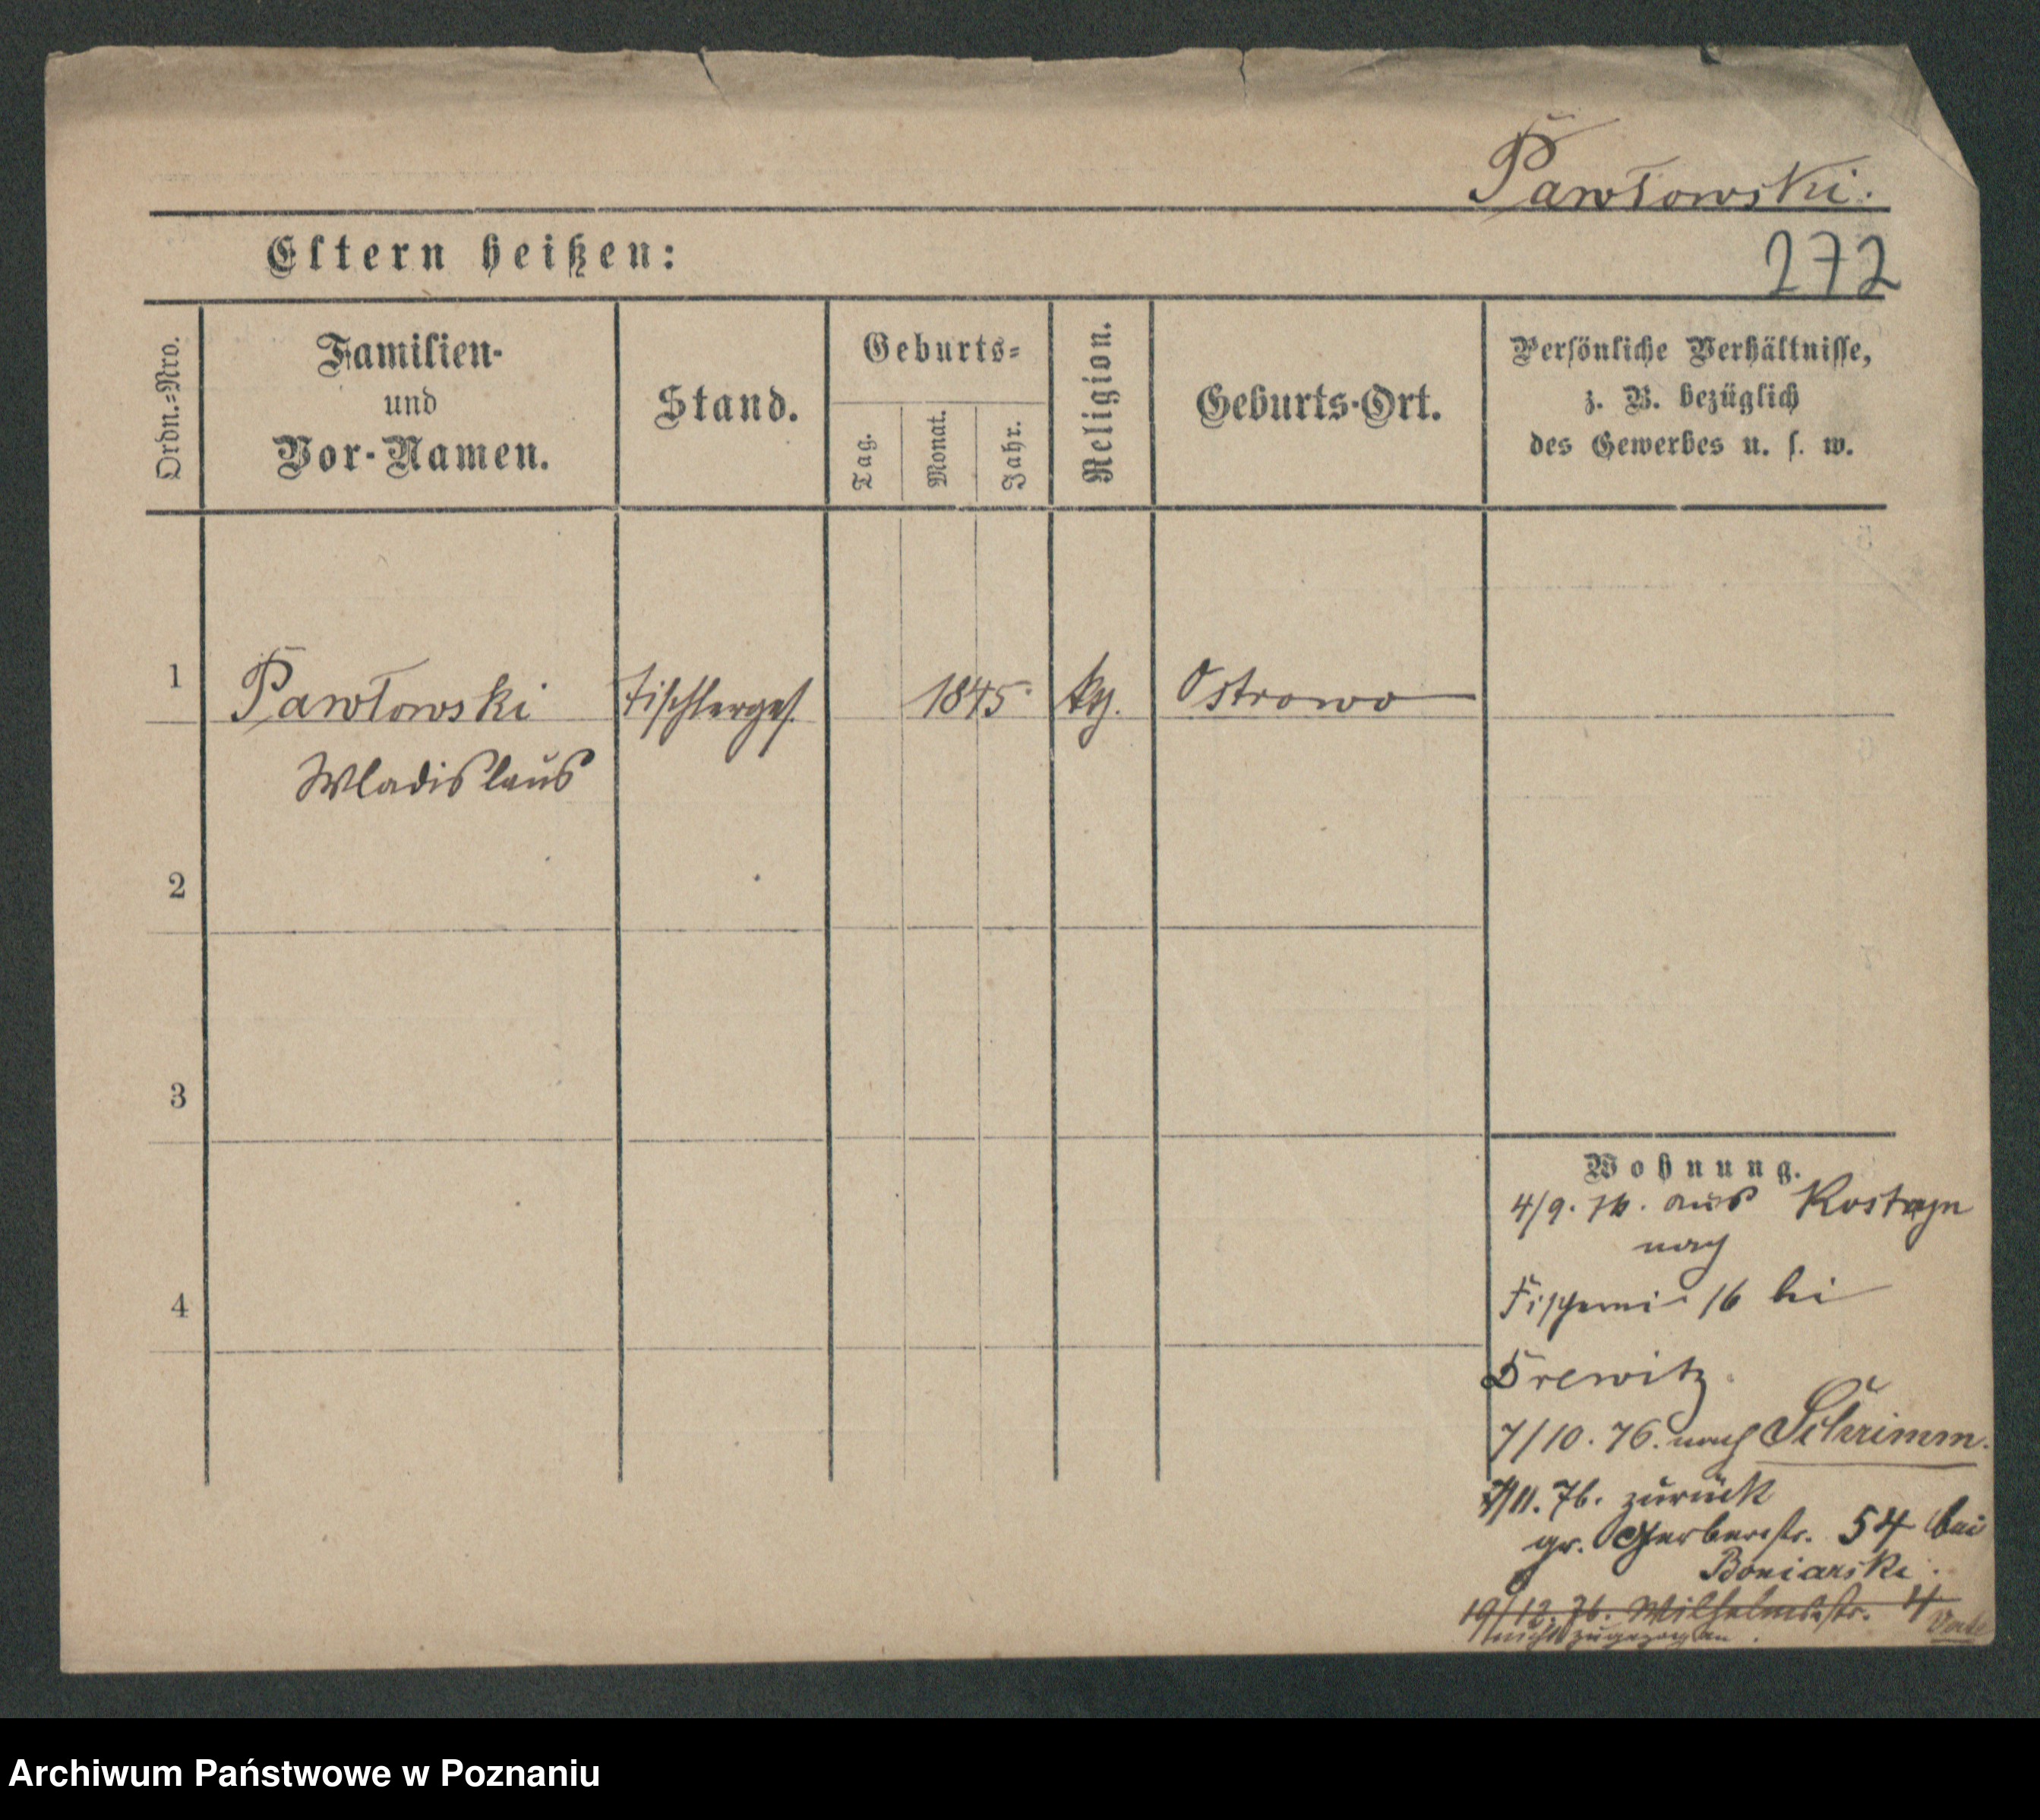 Pawłowski.
Eltern heißen:
272
Ordn.=Nro.
Familien-
und
Vor-Namen.
Stand.
Geburts=
Tag.
Monat.
Jahr.
Religion.
Geburts-Ort.
Persönliche Verhältnisse,
z. B. bezüglich
des Gewerbes u. s. w.
1
Pawłowski
Tischlerges.
1845.
kth.
Ostrowo
Wladislaus
2
3
4
Wohnung.
4/9. 76. aus Kostrzyn
nach
Fischerei 16 bei
Drewitz.
7/10. 76. nach Schrimm.
/11. 76. zurück
gr. Gerberstr. 54 bei
Boniarski.
19/12. 76. Wilhelmstr. 4
nicht zugezogen.
Archiwum Państwowe w Poznaniu